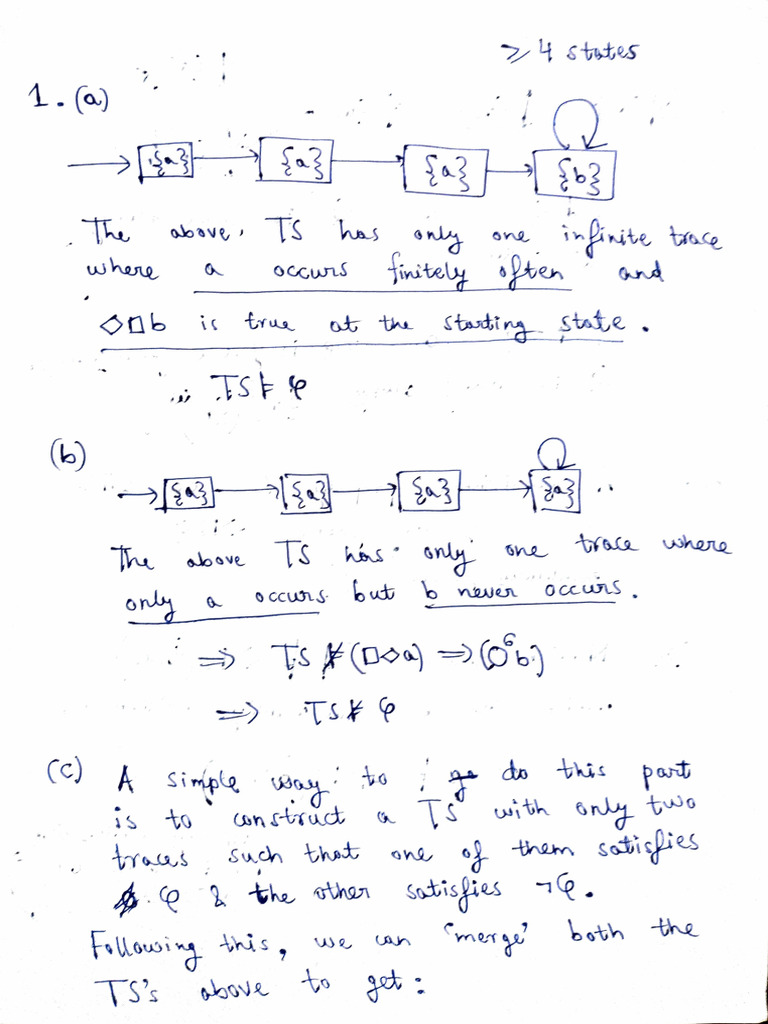 ≥ 4 states
1. (a)
{a} {a} {a} {b}
The above TS has only one infinite trace
where a occurs finitely often and
◇□b is true at the starting state.
∴ TS ⊨ φ
(b)
{a} {a} {a} {a}
The above TS has only one trace where
only a occurs but b never occurs.
⇒ TS ⊭ (□◇a) ⇒ (○⁶b)
⇒ TS ⊭ φ
(c) A simple way to do this part
is to construct a TS with only two
traces such that one of them satisfies
φ & the other satisfies ¬φ.
Following this, we can 'merge' both the
TS's above to get: